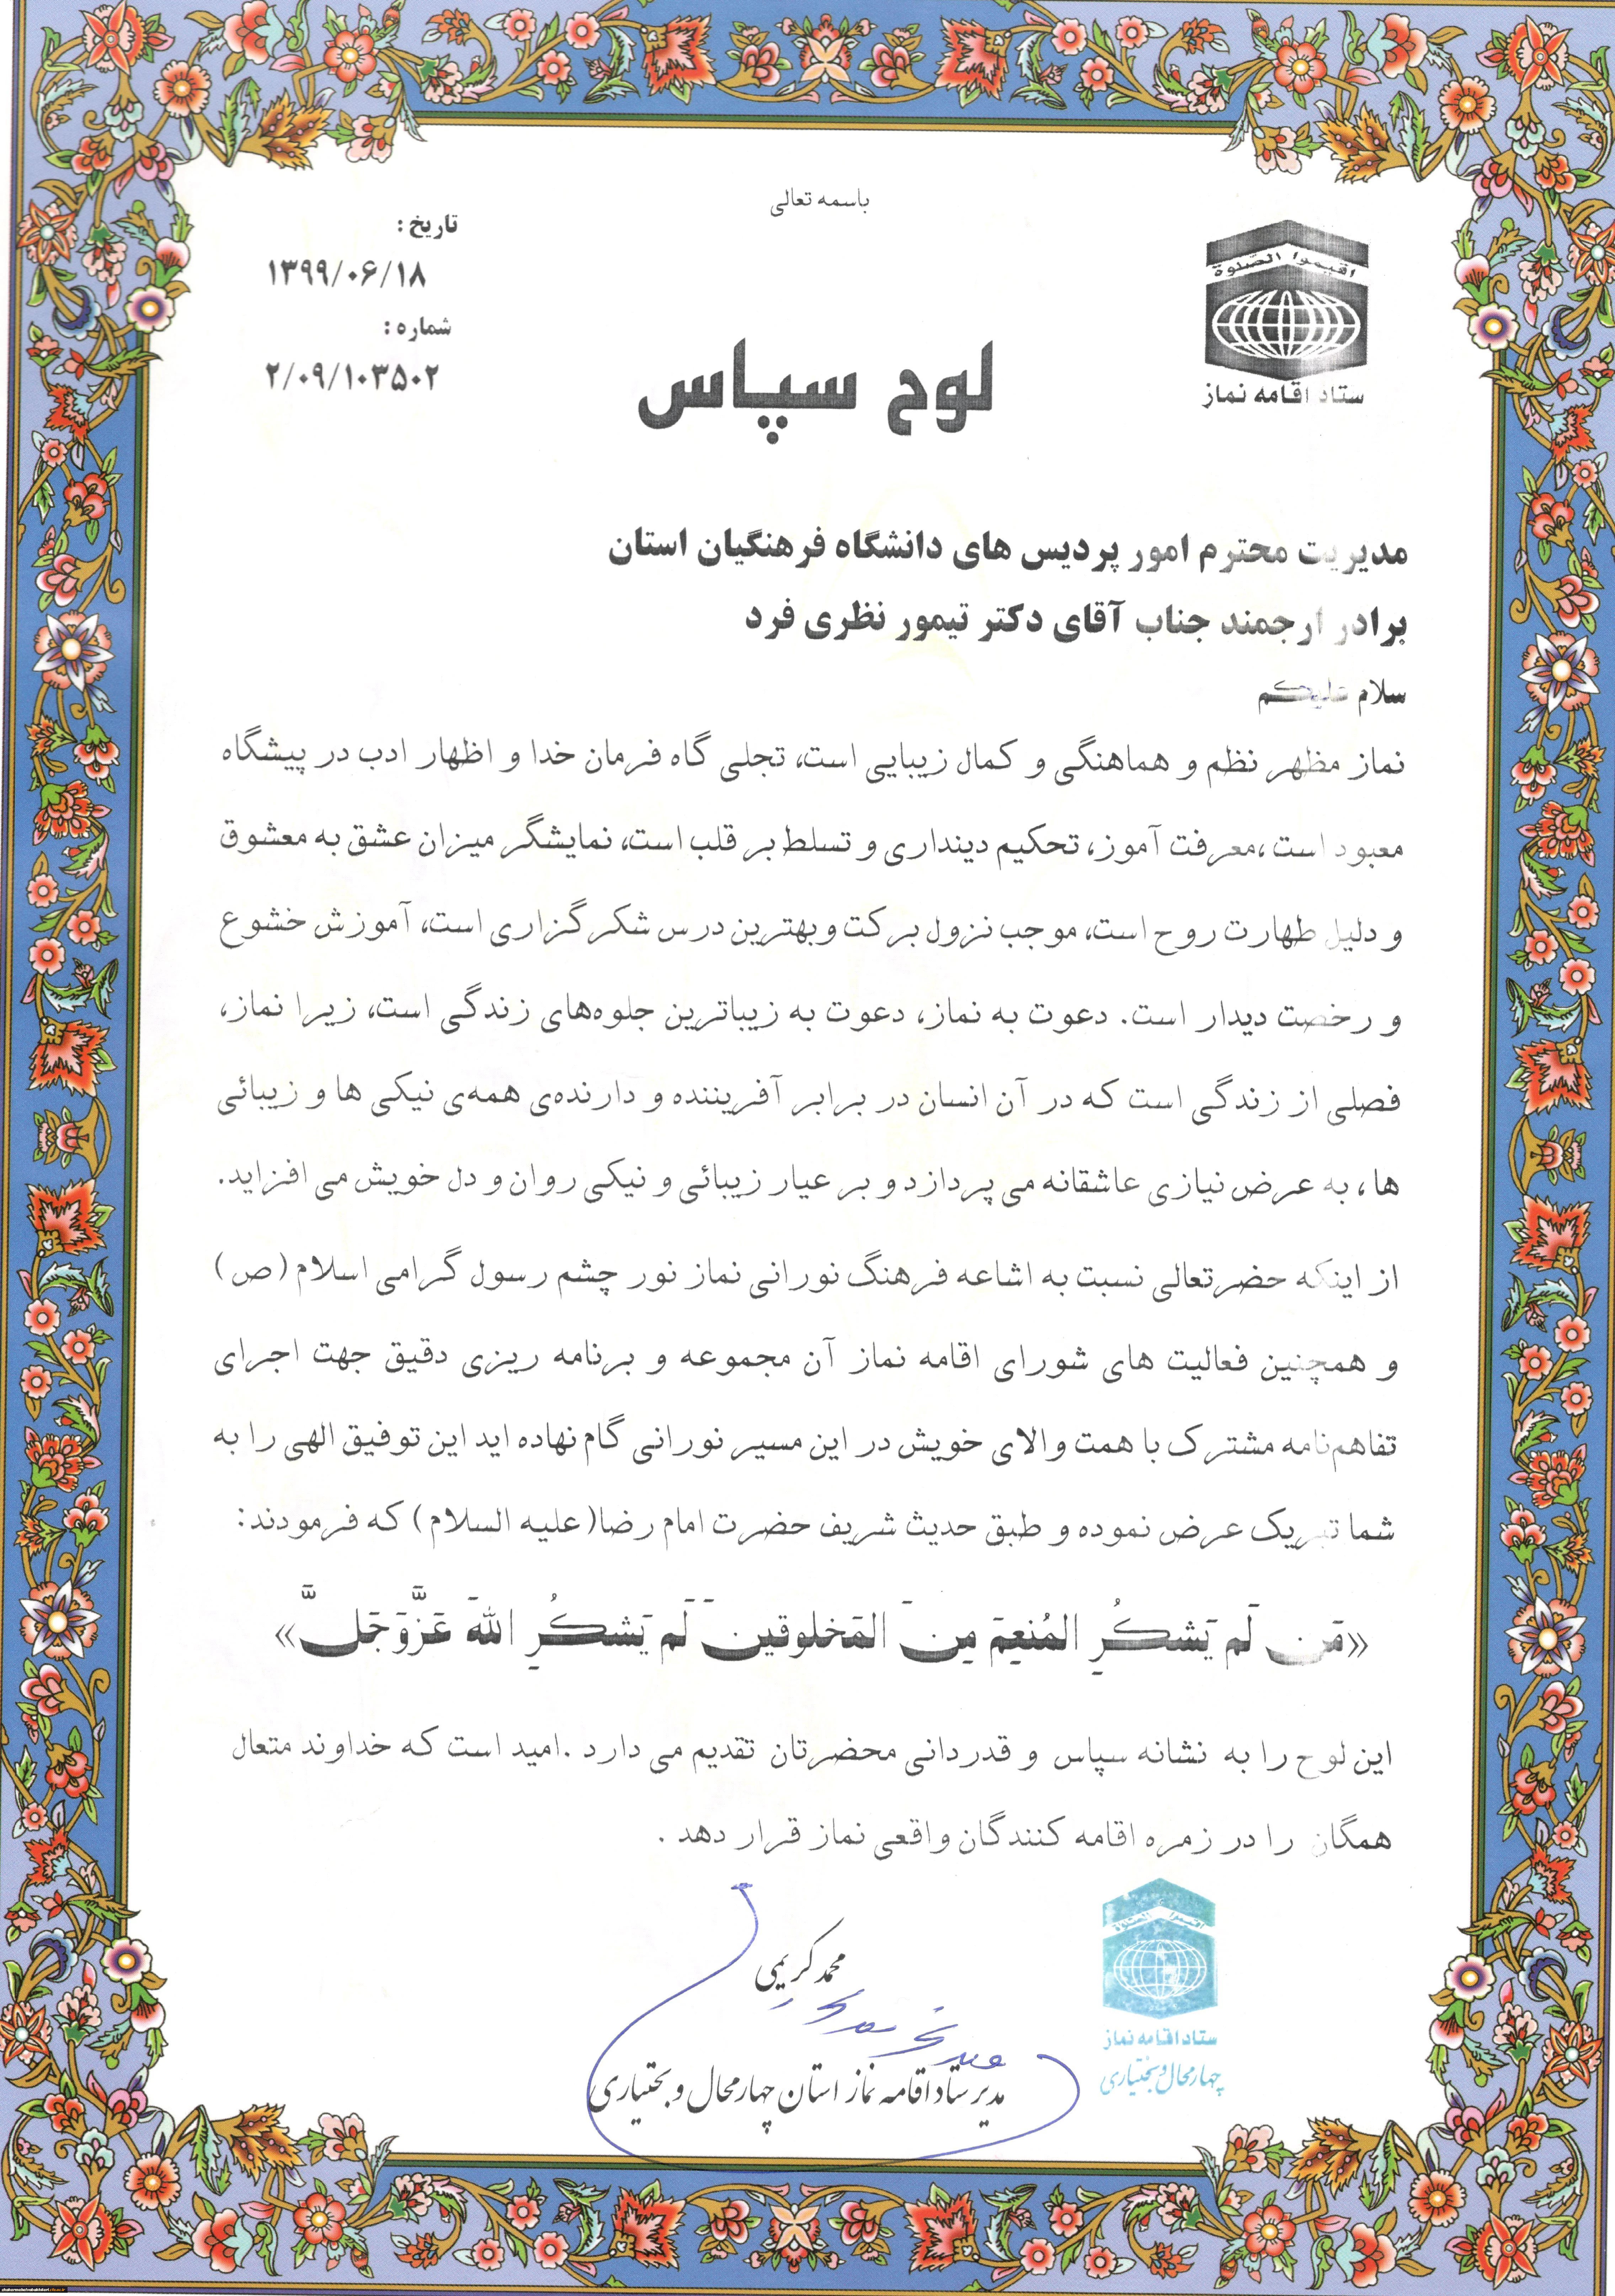 باسمه تعالی
تاریخ :
۱۳۹۹/۰۶/۱۸
شماره :
۲/۰۹/۱۰۳۵۰۲
اقیموا الصلوة
ستاد اقامه نماز
لوح سپاس
مدیریت محترم امور پردیس های دانشگاه فرهنگیان استان
برادر ارجمند جناب آقای دکتر تیمور نظری فرد
سلام علیکم
نماز مظهر نظم و هماهنگی و کمال زیبایی است، تجلی گاه فرمان خدا و اظهار ادب در پیشگاه
معبود است ،معرفت آموز، تحکیم دینداری و تسلط بر قلب است، نمایشگر میزان عشق به معشوق
و دلیل طهارت روح است، موجب نزول برکت وبهترین درس شکرگزاری است، آموزش خشوع
و رخصت دیدار است. دعوت به نماز، دعوت به زیباترین جلوه‌های زندگی است، زیرا نماز،
فصلی از زندگی است که در آن انسان در برابر آفریننده و دارنده‌ی همه‌ی نیکی ها و زیبائی
ها، به عرض نیازی عاشقانه می پردازد و بر عیار زیبائی و نیکی روان و دل خویش می افزاید.
از اینکه حضرتعالی نسبت به اشاعه فرهنگ نورانی نماز نور چشم رسول گرامی اسلام (ص)
و همچنین فعالیت های شورای اقامه نماز آن مجموعه و برنامه ریزی دقیق جهت اجرای
تفاهم‌نامه مشترک با همت والای خویش در این مسیر نورانی گام نهاده اید این توفیق الهی را به
شما تبریک عرض نموده و طبق حدیث شریف حضرت امام رضا(علیه السلام) که فرمودند:
«مَن لَم یَشکُرِ المُنعِمَ مِنَ المَخلوقینَ لَم یَشکُرِ اللهَ عَزَّوَجَلَّ»
این لوح را به نشانه سپاس و قدردانی محضرتان تقدیم می دارد .امید است که خداوند متعال
همگان را در زمره اقامه کنندگان واقعی نماز قرار دهد .
محمد کریمی
مدیر ستاد اقامه نماز استان چهارمحال و بختیاری
ستاد اقامه نماز
چهارمحال و بختیاری